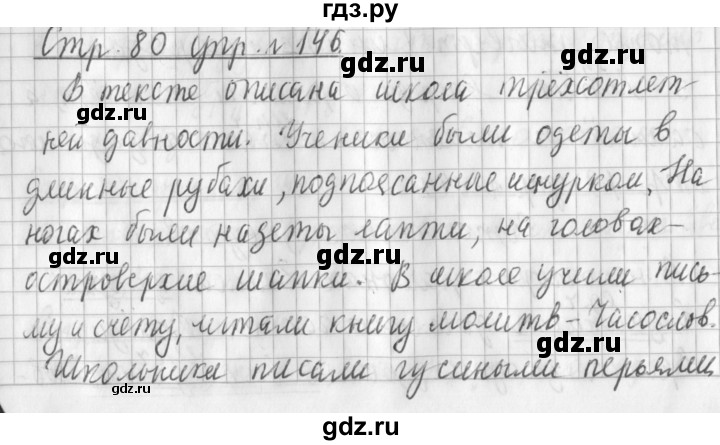 гдз.ру
Стр. 80 упр. № 146.
gdz.ru gdz.ru
В тексте описана школа трёхсотлет-
ней давности. Ученики были одеты в
gdz.ru gdz.ru
длинные рубахи, подпоясанные шнурком, На
ногах были надеты лапти, на головах-
gdz.ru gdz.ru
островерхие шапки. В школе учили пись-
му и счёту, читали книгу молитв – Часослов.
gdz.ru gdz.ru
Школьники писали гусиными перьями
gdz.ru
gdz.ru